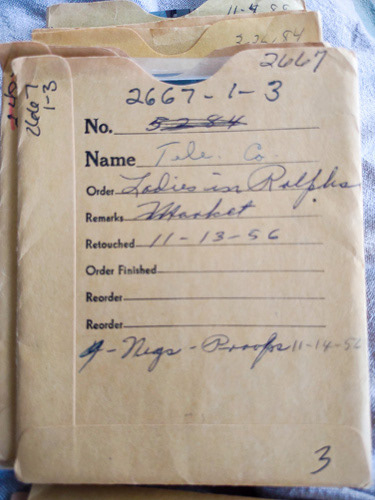 11-4 55
2.26.54
2667
2667
1-3
2667-1-3
No. 5284
Name Tele. Co.
Order Ladies in Ralphs
Remarks Market
Retouched 11-13-56
Order Finished
Reorder
Reorder
4-Negs-Proofs 11-14-56
3